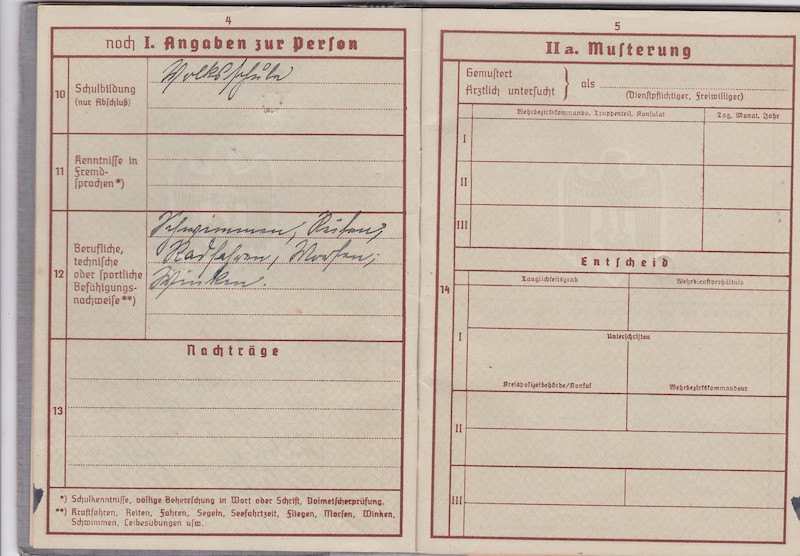 4
noch I. Angaben zur Person
10
Schulbildung
(nur Abschluß)
Volksschule
11
Kenntnisse in
Fremd-
sprachen*)
12
Berufliche,
technische
oder sportliche
Befähigungs-
nachweise**)
Schwimmen, Reiten,
Radfahren, Morsen,
Winken.
Nachträge
13
*) Schulkenntnisse, völlige Beherrschung in Wort oder Schrift, Dolmetscherprüfung.
**) Kraftfahren, Reiten, Fahren, Segeln, Seefahrtzeit, Fliegen, Morsen, Winken,
Schwimmen, Leibesübungen usw.
5
II a. Musterung
Gemustert
Ärztlich untersucht
als
(Dienstpflichtiger, Freiwilliger)
Wehrbezirkskommando, Truppenteil, Konsulat
Tag, Monat, Jahr
I
II
III
Entscheid
14
Tauglichkeitsgrad
Wehrdienstverhältnis
I
Unterschriften
Kreispolizeibehörde/Konsul
Wehrbezirkskommandeur
II
III